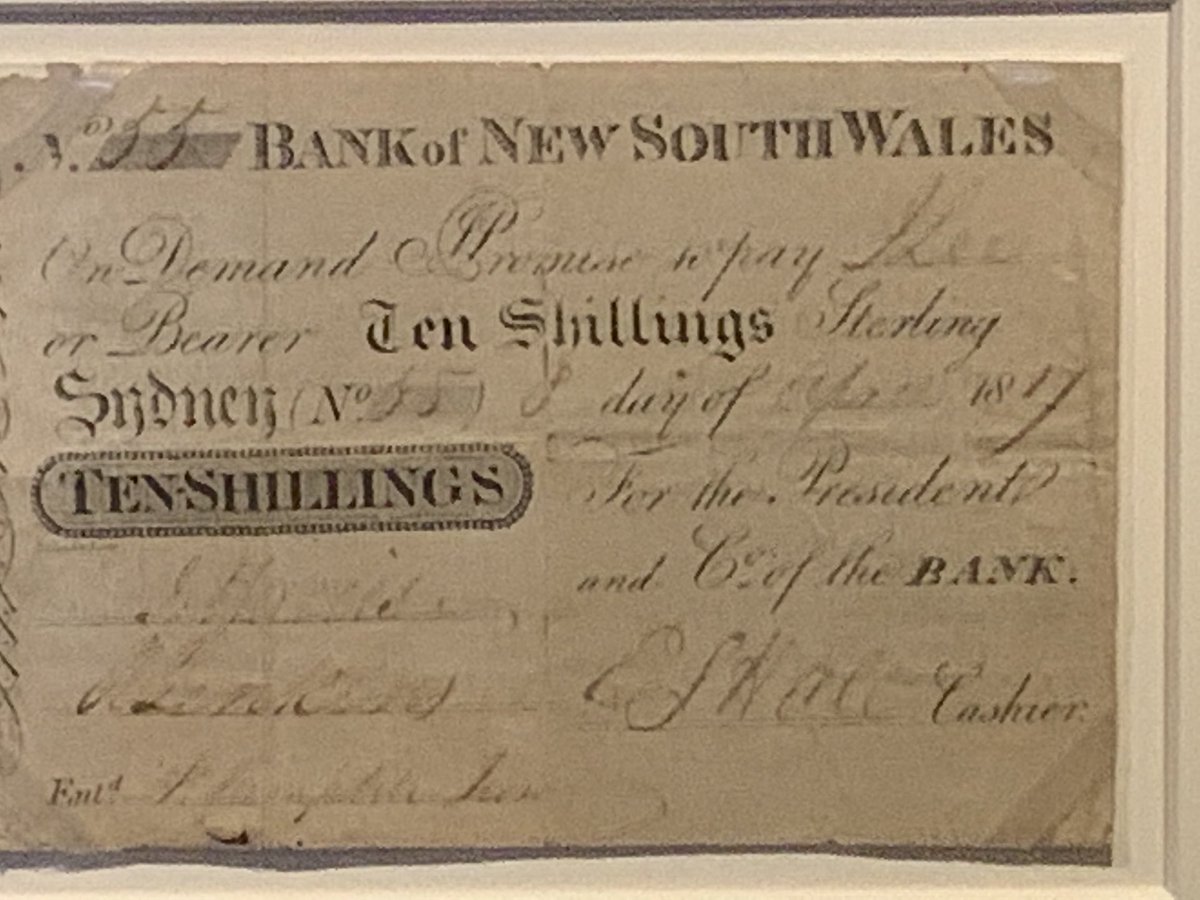 No. 55 BANK of NEW SOUTH WALES
On Demand I Promise to pay
or Bearer Ten Shillings Sterling
Sydney (No. 55) 8 day of April 1817
TEN SHILLINGS
For the President
and Co. of the BANK.
E S Hall Cashier
Entd